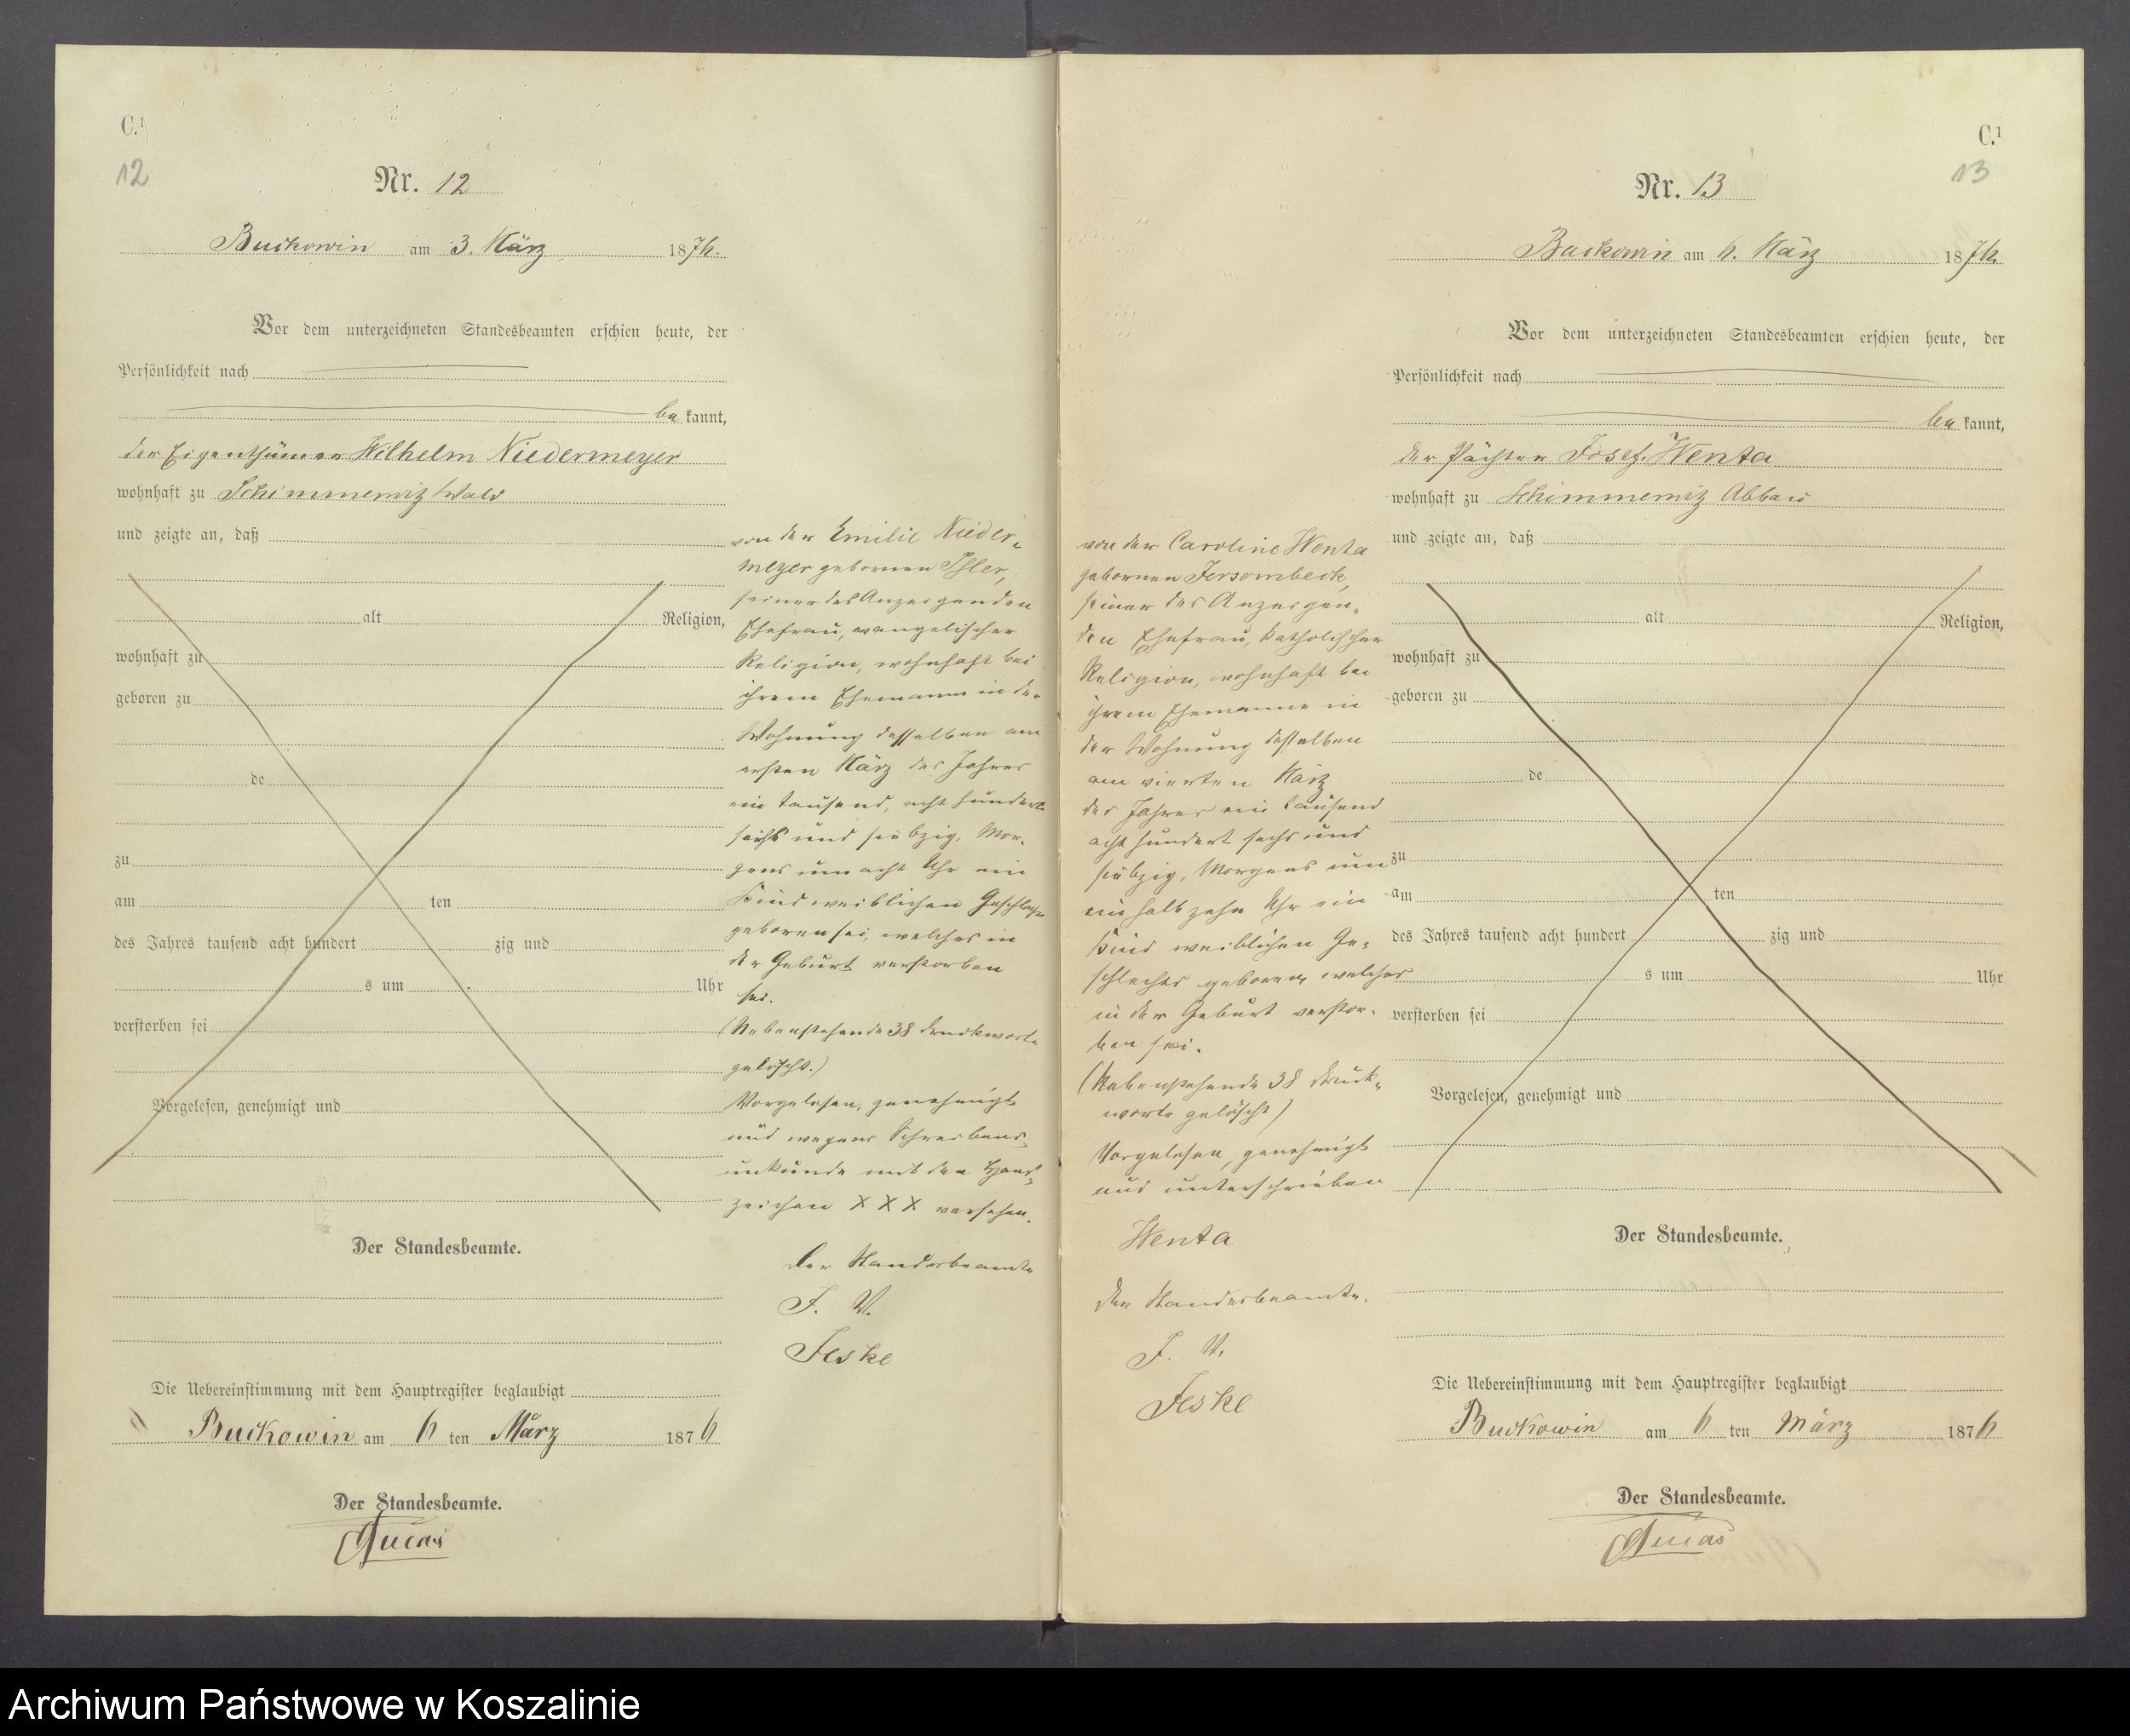 C.¹
12
Nr. 12
Buckowin am 3. März 1876.
Vor dem unterzeichneten Standesbeamten erschien heute, der
Persönlichkeit nach
be kannt,
der Eigenthümer Wilhelm Niedermeyer
wohnhaft zu Schimmerwitz Wald
und zeigte an, daß
alt Religion,
wohnhaft zu
geboren zu
de
zu
am ten
des Jahres tausend acht hundert zig und
s um Uhr
verstorben sei
Vorgelesen, genehmigt und
von der Emilie Nieder-
meyer gebornen
seiner des Anzeigenden
Ehefrau, evangelischer
Religion, wohnhaft bei
ihrem Ehemanne in der
Wohnung desselben am
ersten März des Jahres
ein tausend, acht hundert
sechs und siebzig, Mor-
gens um acht Uhr ein
Kind weiblichen Geschlechts
geboren sei, welches in
der Geburt verstorben
sei.
(Nebenstehende 38 Druckworte
gelöscht.)
Vorgelesen, genehmigt
und wegens Schreibens-
unkunde mit den Hand-
zeichen X X X versehen.
Der Standesbeamte
J. V.
Jeske
Der Standesbeamte.
Die Uebereinstimmung mit dem Hauptregister beglaubigt
Buckowin am 6 ten März 1876
Der Standesbeamte.
C.¹
13
Nr. 13
Buckowin am 6. März 1876.
Vor dem unterzeichneten Standesbeamten erschien heute, der
Persönlichkeit nach
be kannt,
der Pächter Josef Wenta
wohnhaft zu Schimmerwitz Abbau
und zeigte an, daß
alt Religion,
wohnhaft zu
geboren zu
de
zu
am ten
des Jahres tausend acht hundert zig und
s um Uhr
verstorben sei
Vorgelesen, genehmigt und
von der Caroline Wenta
gebornen
seiner des Anzeigen-
den Ehefrau, katholischer
Religion, wohnhaft bei
ihrem Ehemanne in
der Wohnung desselben
am vierten März
des Jahres ein tausend
acht hundert sechs und
siebzig, Morgens um
ein halb zehn Uhr ein
Kind weiblichen Ge-
schlechts geboren, welches
in der Geburt verstor-
ben sei.
(Nebenstehende 38 Druck-
worte gelöscht)
Vorgelesen, genehmigt
und unterschrieben
Wenta
Der Standesbeamte.
J. V.
Jeske
Der Standesbeamte.
Die Uebereinstimmung mit dem Hauptregister beglaubigt
Buckowin am 6 ten März 1876
Der Standesbeamte.
Archiwum Państwowe w Koszalinie